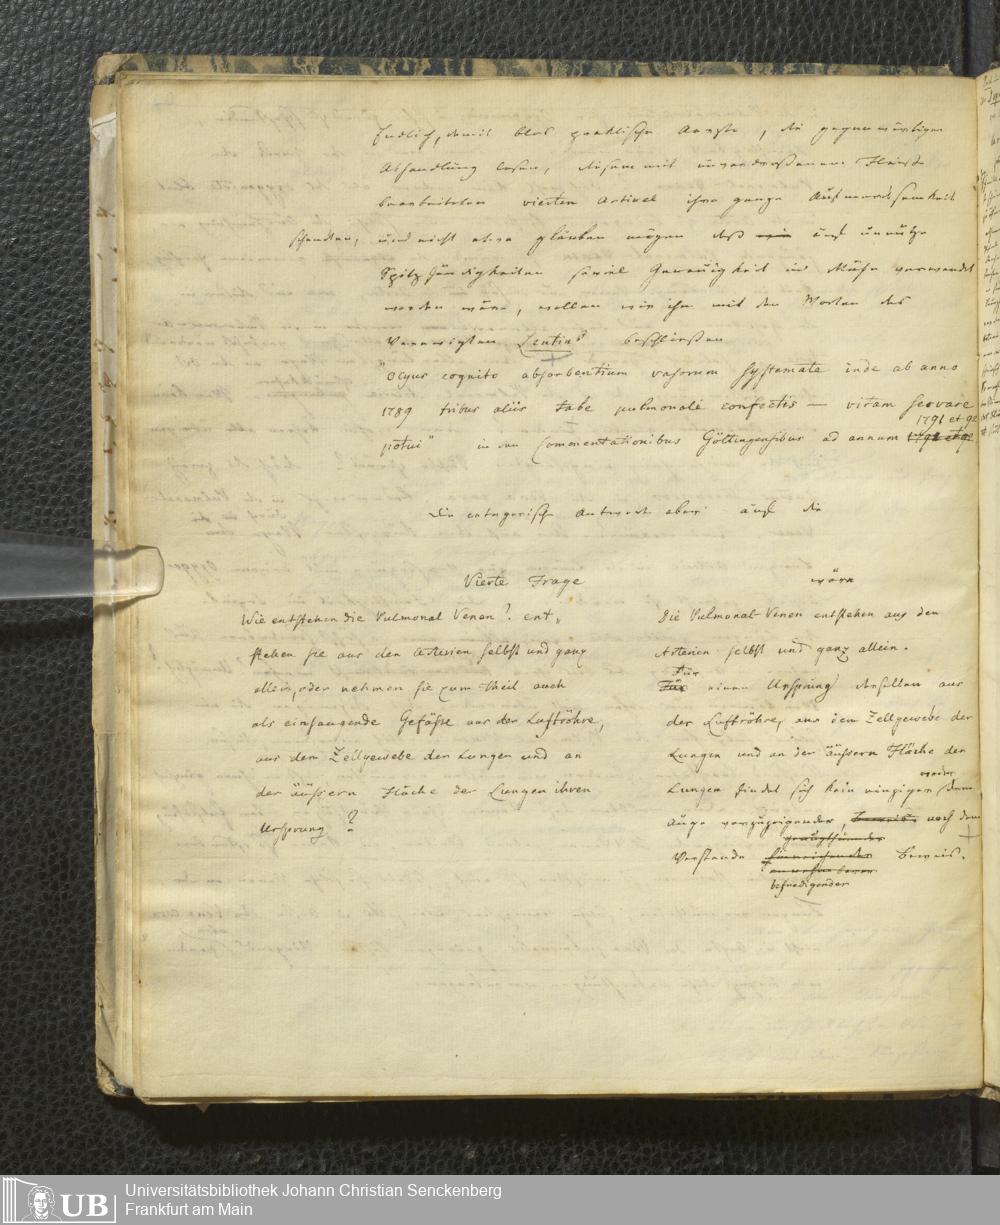 Endlich, damit blos praktische Aerzte, die gegenwärtigen
Abhandlung lesen, diesem mit unverdroßenem Fleiße
bearbeiteten vierten Artikel ihre ganze Aufmerksamkeit
schenken, und nicht etwa glauben mögen daß auf unnütze
Spitzfündigkeiten soviel Genauigkeit und Mühe verwendet
worden wäre, wollen wir ihn mit den Worten des
Verewigten Lentins beschließen
"Ocyus cognito absorbentium vasorum systemate inde ab anno
1789 tribus aliis tabe pulmonali confectis — vitam servare
1791 et 92
potui" in den Commentationibus Göttingensibus ad annum 1791 et 92
Die categorische Antwort aber auf die
Vierte Frage wäre
Wie entstehen die Pulmonal Venen? ent-
stehen sie aus den Arterien selbst und ganz
allein, oder nehmen sie zum Theil auch
als einsaugende Gefäße aus der Luftröhre,
aus dem Zellgewebe der Lungen und an
der äüßern Fläche der Lungen ihren
Ursprung?
Die Pulmonal-Venen entstehen aus den
Arterien selbst und ganz allein.
Für
Für einen Ursprung derselben aus
der Luftröhre, aus dem Zellgewebe der
Lungen und an der äüßern Fläche der
weder
Lungen findet sich kein einziger dem
Auge vorzuzeigender, Beweis noch dem
genugthuender
Verstande hinreichender Beweis.
befriedigender
Universitätsbibliothek Johann Christian Senckenberg
Frankfurt am Main
UB